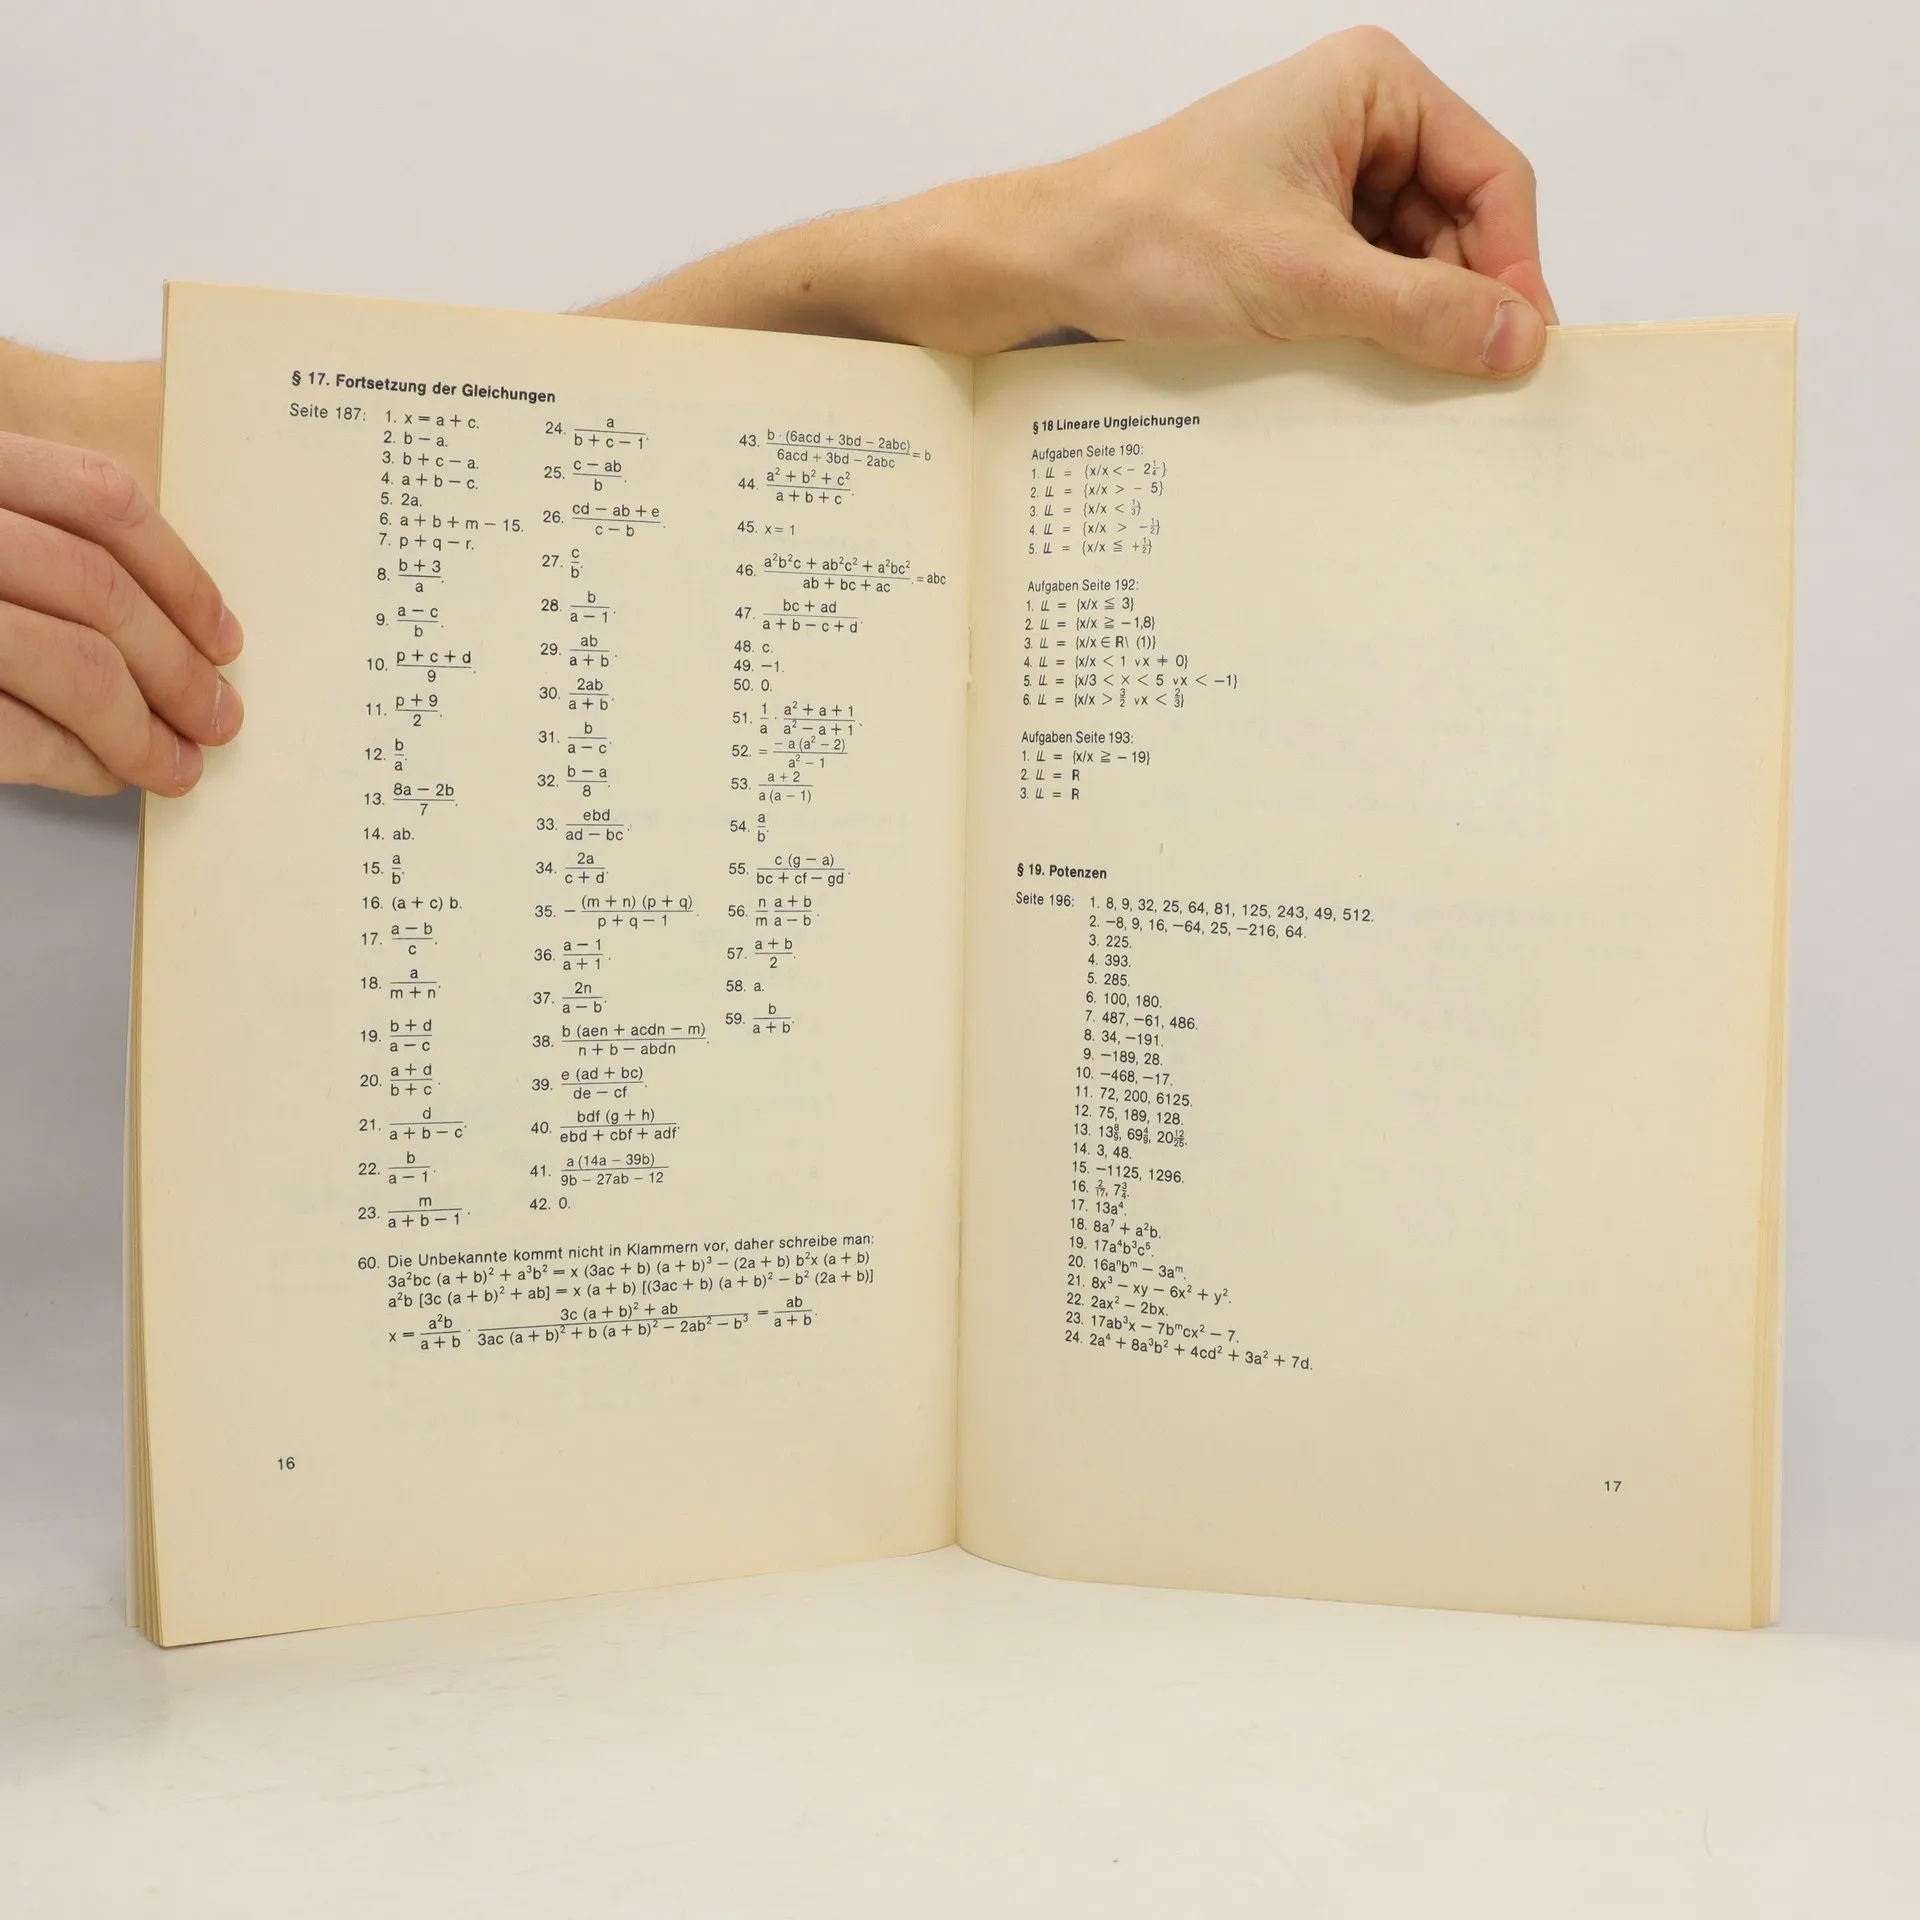 § 17. Fortsetzung der Gleichungen
Seite 187:
1. x = a + c.
2. b − a.
3. b + c − a.
4. a + b − c.
5. 2a.
6. a + b + m − 15.
7. p + q − r.
8. (b + 3)/a.
9. (a − c)/b.
10. (p + c + d)/9.
11. (p + 9)/2.
12. b/a.
13. (8a − 2b)/7.
14. ab.
15. a/b.
16. (a + c) b.
17. (a − b)/c.
18. a/(m + n).
19. (b + d)/(a − c)
20. (a + d)/(b + c).
21. d/(a + b − c).
22. b/(a − 1).
23. m/(a + b − 1).
24. a/(b + c − 1).
25. (c − ab)/b.
26. (cd − ab + e)/(c − b).
27. c/b.
28. b/(a − 1).
29. ab/(a + b).
30. 2ab/(a + b).
31. b/(a − c).
32. (b − a)/8.
33. ebd/(ad − bc).
34. 2a/(c + d).
35. − (m + n) (p + q)/(p + q − 1).
36. (a − 1)/(a + 1).
37. 2n/(a − b).
38. b (aen + acdn − m)/(n + b − abdn).
39. e (ad + bc)/(de − cf).
40. bdf (g + h)/(ebd + cbf + adf).
41. a (14a − 39b)/(9b − 27ab − 12)
42. 0.
43. b · (6acd + 3bd − 2abc)/(6acd + 3bd − 2abc) = b
44. (a² + b² + c²)/(a + b + c).
45. x = 1
46. (a²b²c + ab²c² + a²bc²)/(ab + bc + ac). = abc
47. (bc + ad)/(a + b − c + d).
48. c.
49. −1.
50. 0.
51. 1/a · (a² + a + 1)/(a² − a + 1).
52. = −a (a² − 2)/(a² − 1)
53. (a + 2)/(a (a − 1))
54. a/b.
55. c (g − a)/(bc + cf − gd).
56. n/m (a + b)/(a − b).
57. (a + b)/2.
58. a.
59. b/(a + b).
60. Die Unbekannte kommt nicht in Klammern vor, daher schreibe man:
3a²bc (a + b)² + a³b² = x (3ac + b) (a + b)³ − (2a + b) b²x (a + b)
a²b [3c (a + b)² + ab] = x (a + b) [(3ac + b) (a + b)² − b² (2a + b)]
x = a²b/(a + b) · (3c (a + b)² + ab)/(3ac (a + b)² + b (a + b)² − 2ab² − b³) = ab/(a + b).
16
§ 18 Lineare Ungleichungen
Aufgaben Seite 190:
1. 𝕃 = {x/x < − 2¼}
2. 𝕃 = {x/x > − 5}
3. 𝕃 = {x/x < ⅓}
4. 𝕃 = {x/x > −½}
5. 𝕃 = {x/x ≦ +½}
Aufgaben Seite 192:
1. 𝕃 = {x/x ≦ 3}
2. 𝕃 = {x/x ≧ −1,8}
3. 𝕃 = {x/x ∈ R\ (1)}
4. 𝕃 = {x/x < 1 vx ≠ 0}
5. 𝕃 = {x/3 < x < 5 vx < −1}
6. 𝕃 = {x/x > 3/2 vx < 2/3}
Aufgaben Seite 193:
1. 𝕃 = {x/x ≧ − 19}
2. 𝕃 = R
3. 𝕃 = R
§ 19. Potenzen
Seite 196:
1. 8, 9, 32, 25, 64, 81, 125, 243, 49, 512.
2. −8, 9, 16, −64, 25, −216, 64.
3. 225.
4. 393.
5. 285.
6. 100, 180.
7. 487, −61, 486.
8. 34, −191.
9. −189, 28.
10. −468, −17.
11. 72, 200, 6125.
12. 75, 189, 128.
13. 13 8/9, 69 4/9, 20 12/25.
14. 3, 48.
15. −1125, 1296.
16. 2/17, 7¾.
17. 13a⁴.
18. 8a⁷ + a²b.
19. 17a⁴b³c⁵.
20. 16aⁿbᵐ − 3aᵐ.
21. 8x³ − xy − 6x² + y².
22. 2ax² − 2bx.
23. 17ab³x − 7bᵐcx² − 7.
24. 2a⁴ + 8a³b² + 4cd² + 3a² + 7d.
17